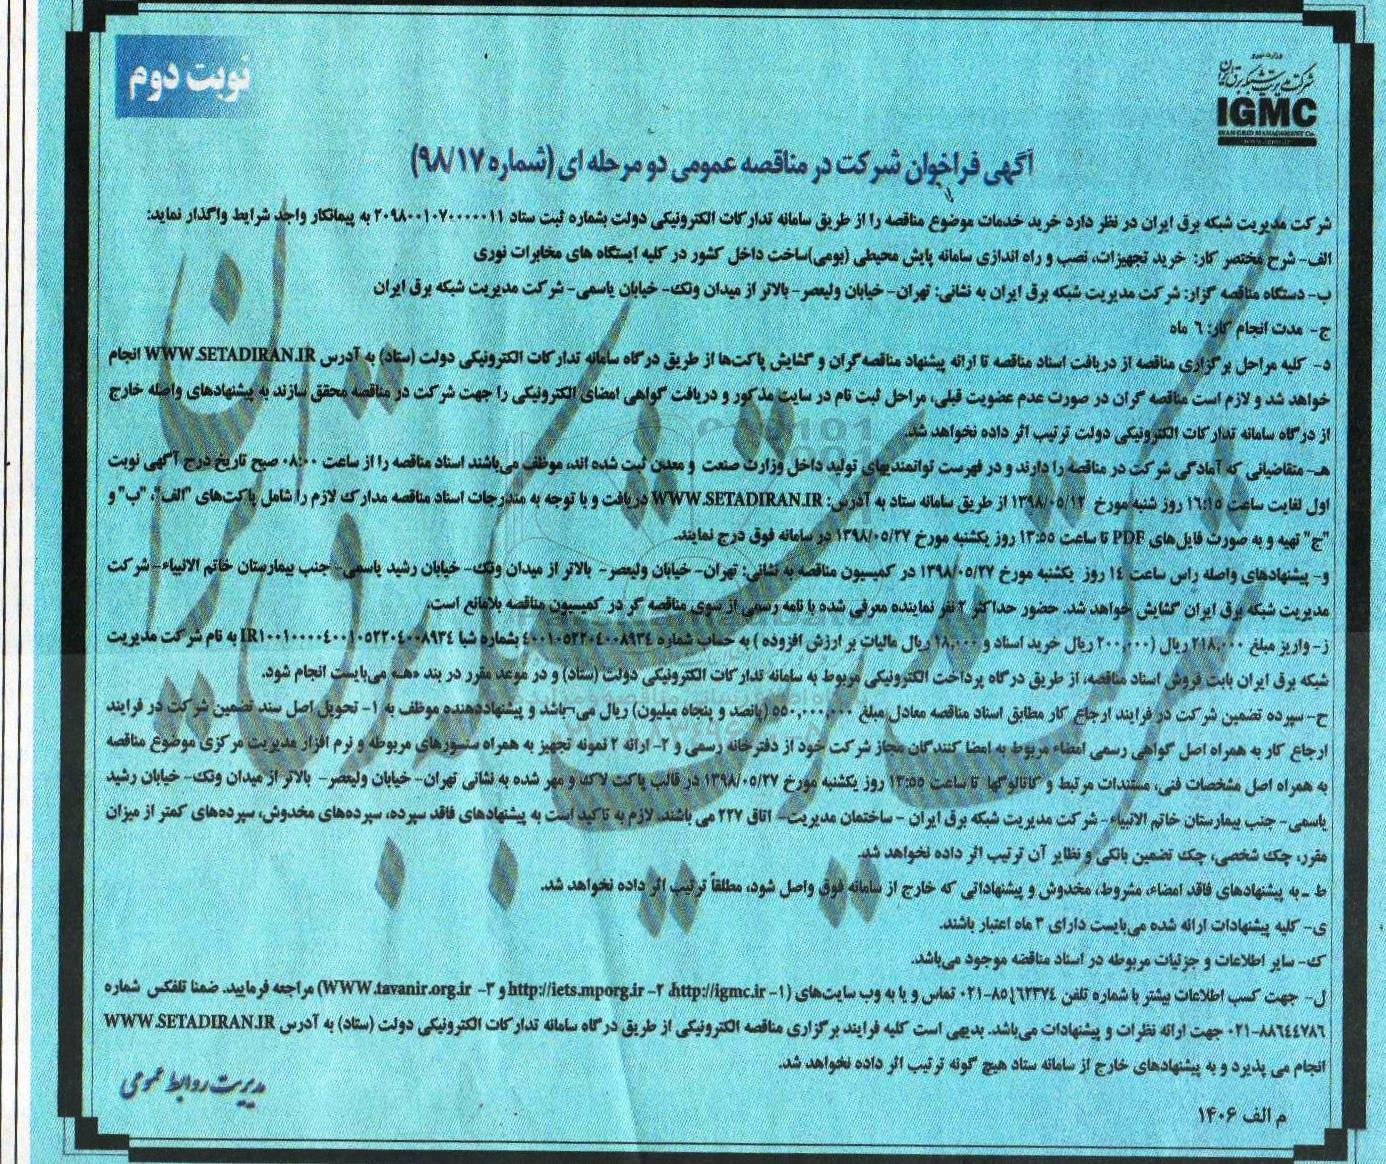 نوبت دوم
وزارت نیرو
شرکت مدیریت شبکه برق ایران
IGMC
IRAN GRID MANAGEMENT Co.
www.igmc.ir
آگهی فراخوان شرکت در مناقصه عمومی دو مرحله ای (شماره ۹۸/۱۷)
شرکت مدیریت شبکه برق ایران در نظر دارد خرید خدمات موضوع مناقصه را از طریق سامانه تدارکات الکترونیکی دولت بشماره ثبت ستاد ۲۰۹۸۰۰۱۰۷۰۰۰۰۰۱۱ به پیمانکار واجد شرایط واگذار نماید:
الف- شرح مختصر کار: خرید تجهیزات، نصب و راه اندازی سامانه پایش محیطی (بومی)ساخت داخل کشور در کلیه ایستگاه های مخابرات نوری
ب- دستگاه مناقصه گزار: شرکت مدیریت شبکه برق ایران به نشانی: تهران- خیابان ولیعصر- بالاتر از میدان ونک- خیابان یاسمی- شرکت مدیریت شبکه برق ایران
ج- مدت انجام کار: ۶ ماه
د- کلیه مراحل برگزاری مناقصه از دریافت اسناد مناقصه تا ارائه پیشنهاد مناقصه‌گران و گشایش پاکت‌ها از طریق درگاه سامانه تدارکات الکترونیکی دولت (ستاد) به آدرس WWW.SETADIRAN.IR انجام
خواهد شد و لازم است مناقصه گران در صورت عدم عضویت قبلی، مراحل ثبت نام در سایت مذکور و دریافت گواهی امضای الکترونیکی را جهت شرکت در مناقصه محقق سازند به پیشنهادهای واصله خارج
از درگاه سامانه تدارکات الکترونیکی دولت ترتیب اثر داده نخواهد شد.
هـ- متقاضیانی که آمادگی شرکت در مناقصه را دارند و در فهرست توانمندیهای تولید داخل وزارت صنعت و معدن ثبت شده اند، موظف می‌باشند اسناد مناقصه را از ساعت ۰۸:۰۰ صبح تاریخ درج آگهی نوبت
اول لغایت ساعت ۱۶:۱۵ روز شنبه مورخ ۱۳۹۸/۰۵/۱۲ از طریق سامانه ستاد به آدرس: WWW.SETADIRAN.IR دریافت و با توجه به مندرجات اسناد مناقصه مدارک لازم را شامل پاکت‌های "الف"، "ب" و
"ج" تهیه و به صورت فایل‌های PDF تا ساعت ۱۳:۵۵ روز یکشنبه مورخ ۱۳۹۸/۰۵/۲۷ در سامانه فوق درج نمایند.
و- پیشنهادهای واصله راس ساعت ۱۴ روز یکشنبه مورخ ۱۳۹۸/۰۵/۲۷ در کمیسیون مناقصه به نشانی: تهران- خیابان ولیعصر- بالاتر از میدان ونک- خیابان رشید یاسمی- جنب بیمارستان خاتم الانبیاء- شرکت
مدیریت شبکه برق ایران گشایش خواهد شد. حضور حداکثر ۲ نفر نماینده معرفی شده با نامه رسمی از سوی مناقصه گر در کمیسیون مناقصه بلامانع است.
ز- واریز مبلغ ۲۱۸,۰۰۰ ریال (۲۰۰,۰۰۰ ریال خرید اسناد و ۱۸,۰۰۰ ریال مالیات بر ارزش افزوده ) به حساب شماره ۴۰۰۱۰۵۲۲۰۴۰۰۸۹۳۴ بشماره شبا IR۱۰۰۱۰۰۰۰۴۰۰۱۰۵۲۲۰۴۰۰۸۹۳۴ به نام شرکت مدیریت
شبکه برق ایران بابت فروش اسناد مناقصه، از طریق درگاه پرداخت الکترونیکی مربوط به سامانه تدارکات الکترونیکی دولت (ستاد) و در موعد مقرر در بند «هـ» می‌بایست انجام شود.
ح- سپرده تضمین شرکت در فرایند ارجاع کار مطابق اسناد مناقصه معادل مبلغ ۵۵۰,۰۰۰,۰۰۰ (پانصد و پنجاه میلیون) ریال می¬باشد و پیشنهاددهنده موظف به ۱- تحویل اصل سند تضمین شرکت در فرایند
ارجاع کار به همراه اصل گواهی رسمی امضاء مربوط به امضا کنندگان مجاز شرکت خود از دفترخانه رسمی و ۲- ارائه ۲ نمونه تجهیز به همراه سنسورهای مربوطه و نرم افزار مدیریت مرکزی موضوع مناقصه
به همراه اصل مشخصات فنی، مستندات مرتبط و کاتالوگها تا ساعت ۱۳:۵۵ روز یکشنبه مورخ ۱۳۹۸/۰۵/۲۷ در قالب پاکت لاک و مهر شده به نشانی تهران- خیابان ولیعصر- بالاتر از میدان ونک- خیابان رشید
یاسمی- جنب بیمارستان خاتم الانبیاء- شرکت مدیریت شبکه برق ایران - ساختمان مدیریت- اتاق ۲۲۷ می باشند. لازم به تاکید است به پیشنهادهای فاقد سپرده، سپرده‌های مخدوش، سپرده‌های کمتر از میزان
مقرر، چک شخصی، چک تضمین بانکی و نظایر آن ترتیب اثر داده نخواهد شد.
ط ـ به پیشنهادهای فاقد امضاء، مشروط، مخدوش و پیشنهاداتی که خارج از سامانه فوق واصل شود، مطلقاً ترتیب اثر داده نخواهد شد.
ی- کلیه پیشنهادات ارائه شده می‌بایست دارای ۳ ماه اعتبار باشند.
ک- سایر اطلاعات و جزئیات مربوطه در اسناد مناقصه موجود می‌باشد.
ل- جهت کسب اطلاعات بیشتر با شماره تلفن ۸۵۱۶۲۳۷۴-۰۲۱ تماس و یا به وب سایت‌های (۱- http://igmc.ir، ۲- http://iets.mporg.ir و ۳- WWW.tavanir.org.ir) مراجعه فرمایید. ضمنا تلفکس شماره
۸۸۶۴۴۷۸۶-۰۲۱ جهت ارائه نظرات و پیشنهادات می‌باشد. بدیهی است کلیه فرایند برگزاری مناقصه الکترونیکی از طریق درگاه سامانه تدارکات الکترونیکی دولت (ستاد) به آدرس WWW.SETADIRAN.IR
انجام می پذیرد و به پیشنهادهای خارج از سامانه ستاد هیچ گونه ترتیب اثر داده نخواهد شد.
مدیریت روابط عمومی
م الف ۱۴۰۶